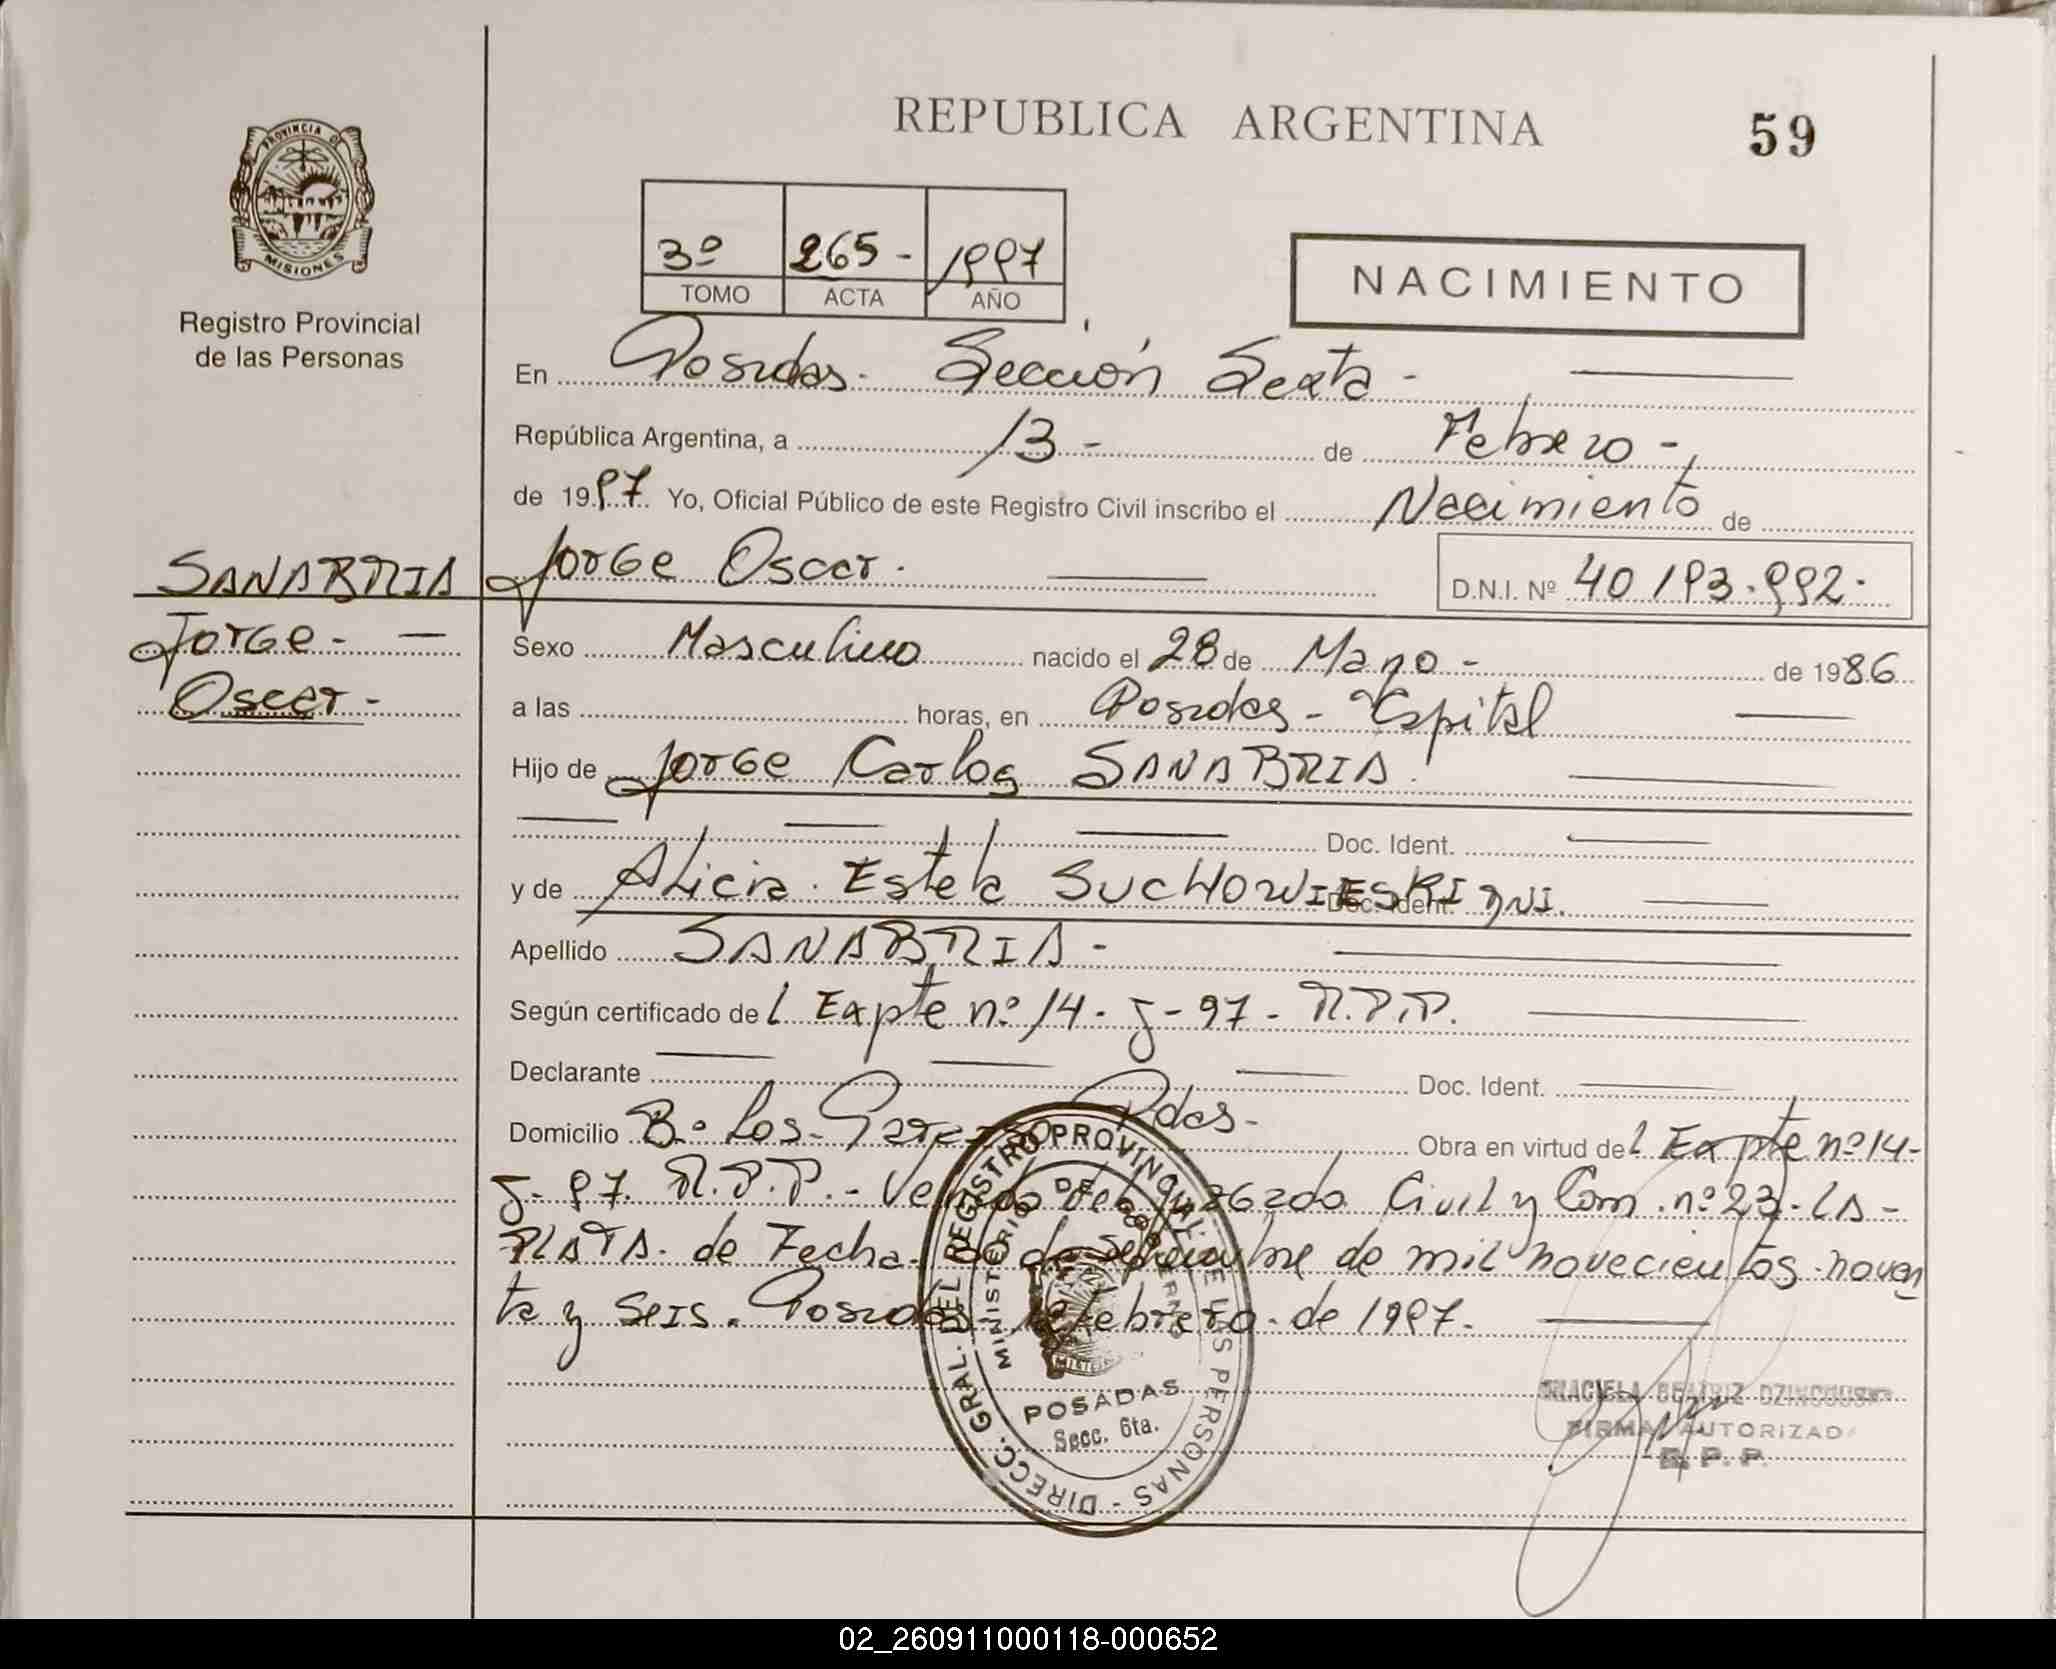 REPUBLICA ARGENTINA
59
PROVINCIA DE
MISIONES
Registro Provincial
de las Personas
3º 265- 1997
TOMO ACTA AÑO
NACIMIENTO
En Posadas. Sección Sexta -
República Argentina, a 13 - de Febrero -
de 1997 Yo, Oficial Público de este Registro Civil inscribo el Nacimiento de
SANABRIA Jorge Oscar. D.N.I. Nº 40 193.992.
Jorge - Oscar -
Sexo Masculino nacido el 28 de Mayo - de 1986
a las horas, en Posadas - Capital
Hijo de Jorge Carlos SANABRIA.
Doc. Ident.
y de Alicia Estela SUCHOWIESKI DNI. Doc. Ident.
Apellido SANABRIA -
Según certificado de l Expte nº 14 - J - 97 - R.P.P.
Declarante Doc. Ident.
Domicilio Bº Los Pdas - Obra en virtud de l Expte nº 14 -
J - 97. R.P.P. - del Juzgado Civil y Com. nº 23 - LA -
PLATA. de Fecha de septiembre de mil novecientos noven
ta y SEIS. Posadas Febrero de 1997.
DIRECC. GRAL. DEL REGISTRO PROVINCIAL DE LAS PERSONAS -
MINISTERIO DE GOBIERNO
POSADAS
Secc. 6ta.
GRACIELA BEATRIZ
FIRMA AUTORIZADA
R.P.P.
02_260911000118-000652